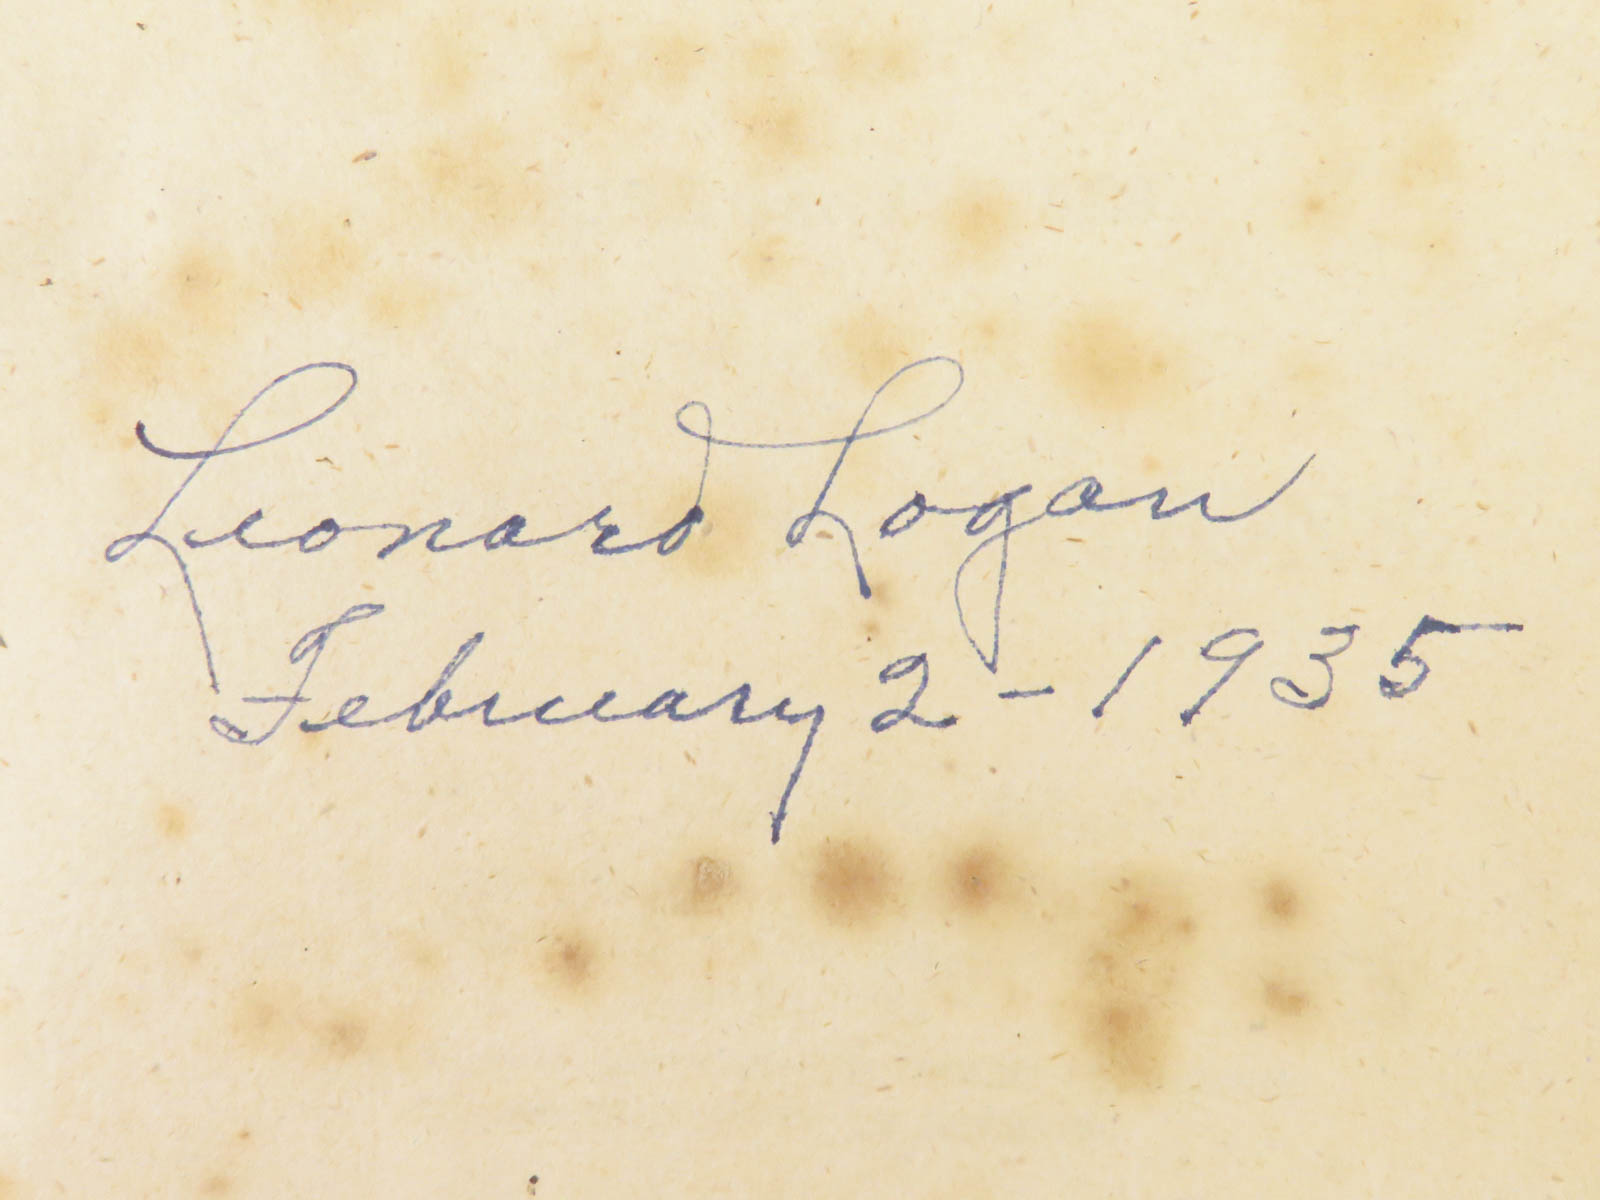 Leonard Logan
February 2 - 1935